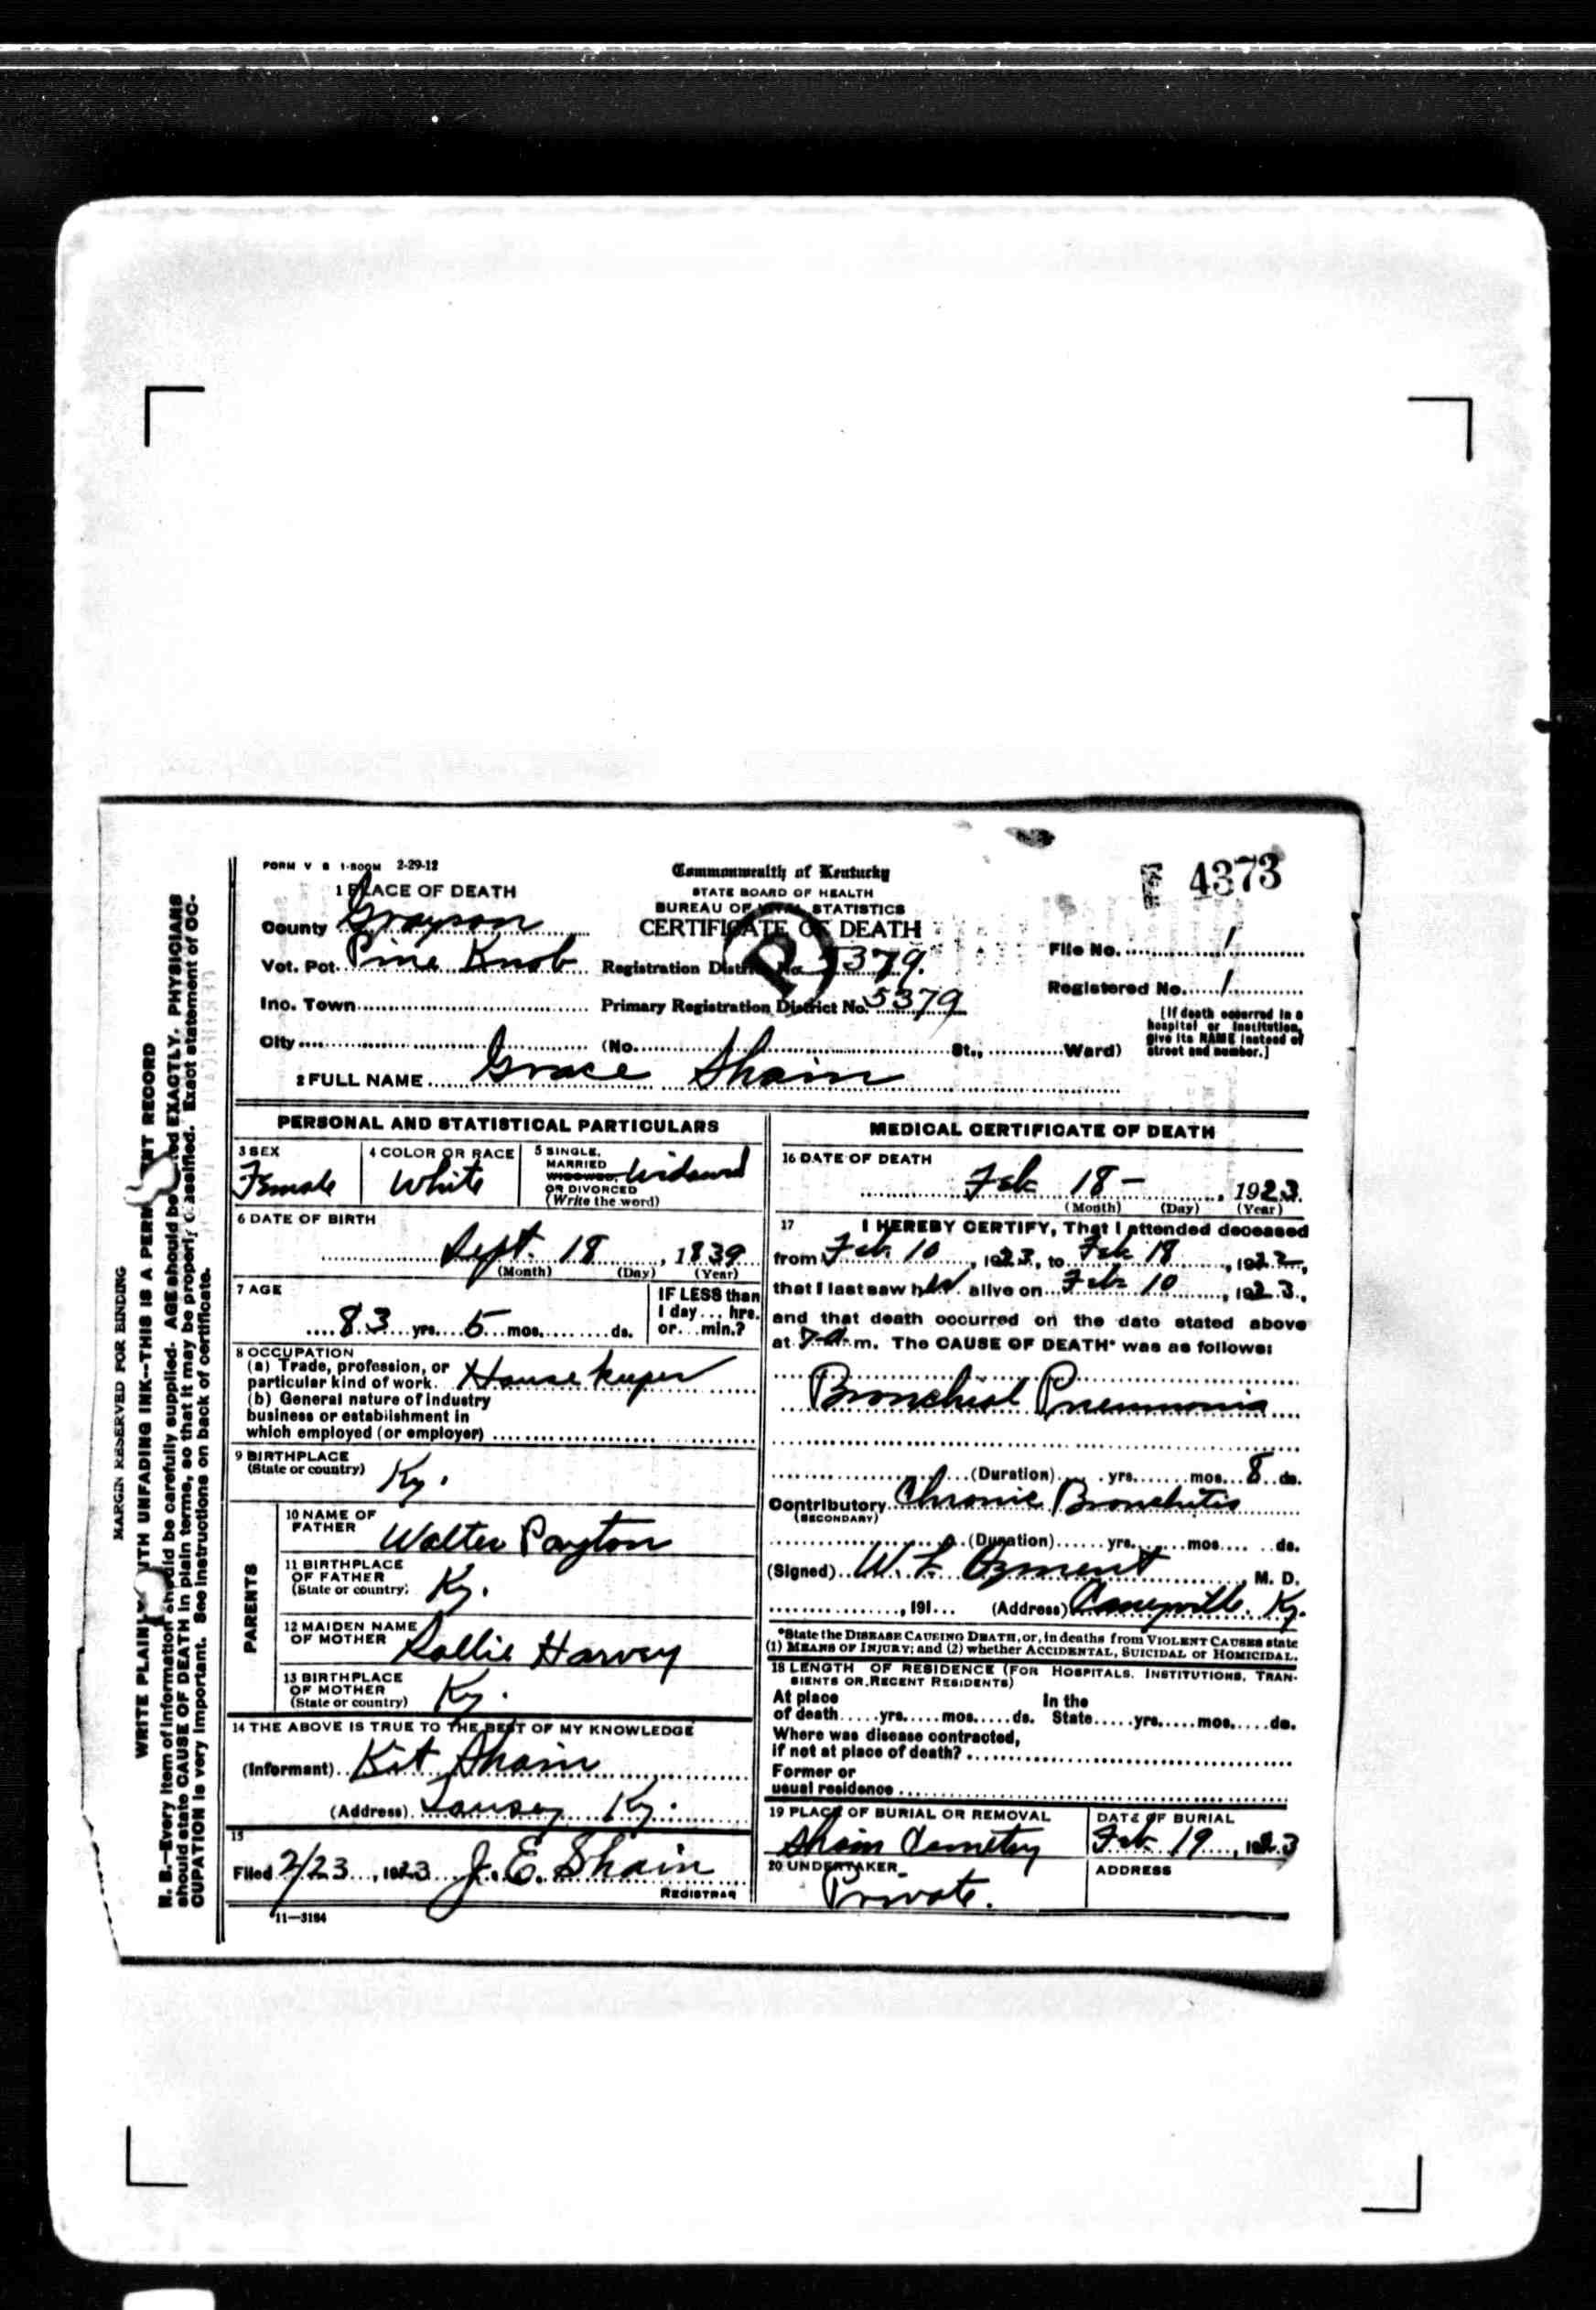 FORM V S 1-500M 2-29-12
Commonwealth of Kentucky
STATE BOARD OF HEALTH
BUREAU OF VITAL STATISTICS
CERTIFICATE OF DEATH
4373
1 PLACE OF DEATH
County Grayson
Vot. Pct. Pine Knob Registration District No. 5379.
File No. 1
Inc. Town Primary Registration District No. 5379
Registered No. 1
City (No. St., Ward)
[If death occurred in a
hospital or institution,
give its NAME instead of
street and number.]
2 FULL NAME Grace Shain
PERSONAL AND STATISTICAL PARTICULARS
3 SEX
Female
4 COLOR OR RACE
White
5 SINGLE,
MARRIED
WIDOWED,
OR DIVORCED
(Write the word)
Widowed
6 DATE OF BIRTH
Sept. 18, 1839
(Month) (Day) (Year)
7 AGE
83 yrs. 5 mos. ds.
IF LESS than
1 day... hrs.
or... min.?
8 OCCUPATION
(a) Trade, profession, or
particular kind of work House keeper
(b) General nature of industry
business or establishment in
which employed (or employer)
9 BIRTHPLACE
(State or country)
Ky.
PARENTS
10 NAME OF
FATHER
Walter Payton
11 BIRTHPLACE
OF FATHER
(State or country)
Ky.
12 MAIDEN NAME
OF MOTHER
Sallie Harvey
13 BIRTHPLACE
OF MOTHER
(State or country)
Ky.
14 THE ABOVE IS TRUE TO THE BEST OF MY KNOWLEDGE
(Informant) Kit Shain
(Address) Ky.
15
Filed 2/23, 1923 J. E. Shain
REGISTRAR
11-3184
MEDICAL CERTIFICATE OF DEATH
16 DATE OF DEATH
Feb 18 - , 1923
(Month) (Day) (Year)
17 I HEREBY CERTIFY, That I attended deceased
from Feb 10, 1923, to Feb 18, 1922,
that I last saw her alive on Feb 10, 1923,
and that death occurred on the date stated above
at 7 a m. The CAUSE OF DEATH* was as follows:
Bronchial Pneumonia
(Duration) yrs. mos. 8 ds.
Contributory Chronic Bronchitis
(SECONDARY)
(Duration) yrs. mos. ds.
(Signed) W. L. Ozment, M. D.
, 191 (Address) Caneyville. Ky.
*State the DISEASE CAUSING DEATH, or, in deaths from VIOLENT CAUSES state
(1) MEANS OF INJURY; and (2) whether ACCIDENTAL, SUICIDAL or HOMICIDAL.
18 LENGTH OF RESIDENCE (FOR HOSPITALS, INSTITUTIONS, TRAN-
SIENTS OR RECENT RESIDENTS)
At place In the
of death yrs. mos. ds. State yrs. mos. ds.
Where was disease contracted,
if not at place of death?
Former or
usual residence
19 PLACE OF BURIAL OR REMOVAL
Shain Cemetry
DATE OF BURIAL
Feb 19, 1923
20 UNDERTAKER
Private.
ADDRESS
MARGIN RESERVED FOR BINDING
WRITE PLAINLY WITH UNFADING INK--THIS IS A PERMANENT RECORD
N. B.--Every item of information should be carefully supplied. AGE should be stated EXACTLY. PHYSICIANS
should state CAUSE OF DEATH in plain terms, so that it may be properly classified. Exact statement of OC-
CUPATION is very important. See instructions on back of certificate.